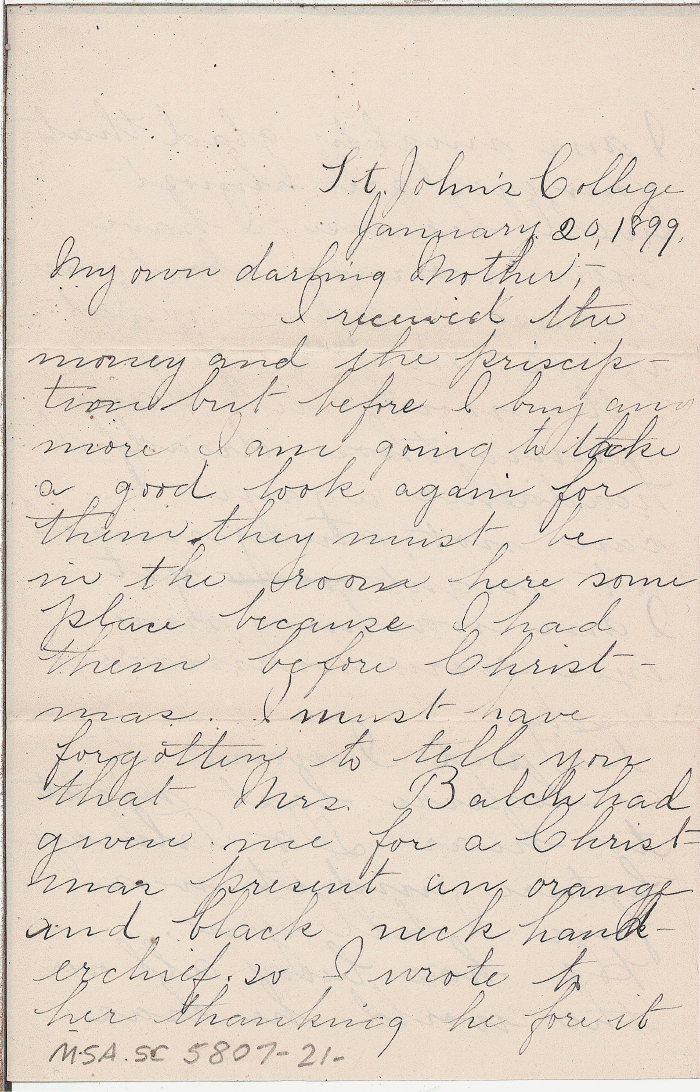 St. John's College
January 20, 1899.
My own darling Mother,-
I received the
money and the priscip-
tion but before I buy any
more I am going to take
a good look again for
them, they must be
in the room here some
place because I had
them before Christ-
mas. I must have
forgotten to tell you
that Mrs. Balch had
given me for a Christ-
mas present an orange
and black neck hand-
erchief. so I wrote to
her thanking he fore it
M.S.A. SC 5807-21-